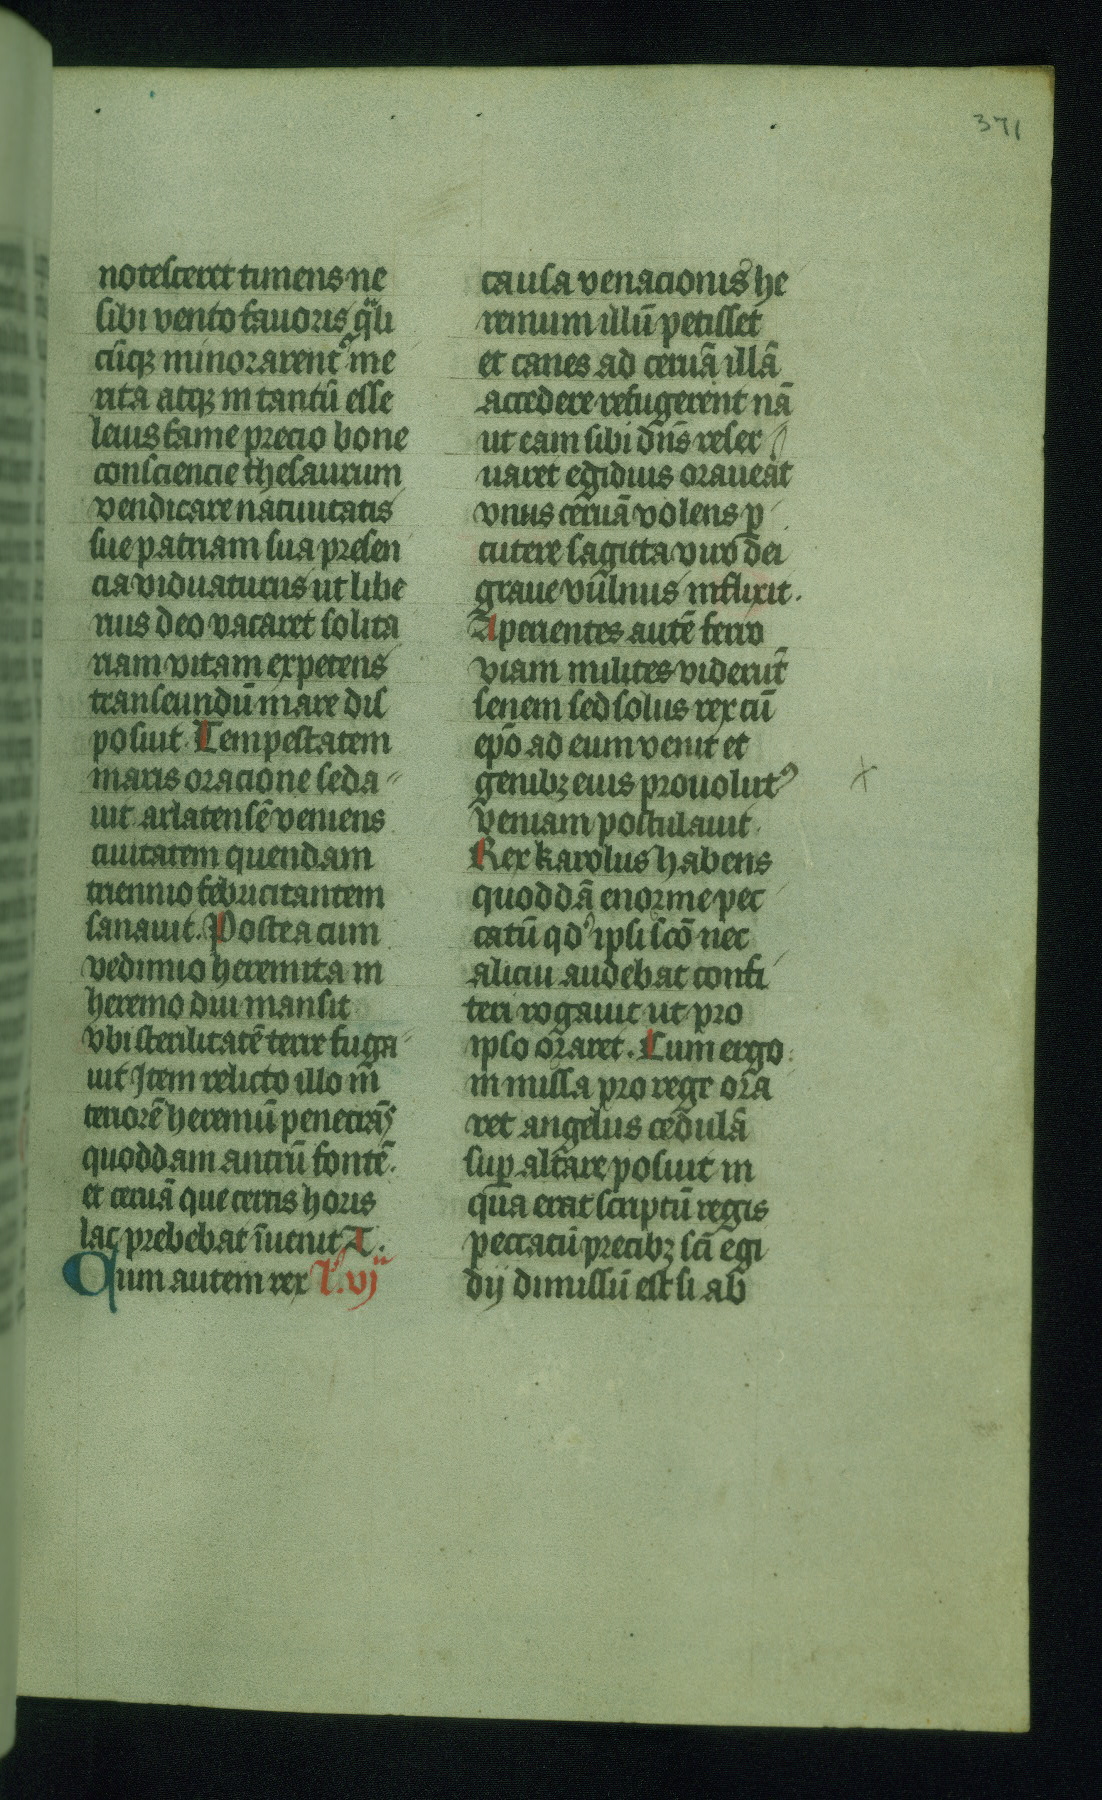 371
notesceret timens ne
sibi vento fauoris q̄li
cūqꝫ minorarent᷑ me
rita atqꝫ in tantū esse
leius fame precio bone
consciencie thesaurum
vendicare natiuitatis
sue patriam sua presen
cia viduaturus ut libe
rius deo vacaret solita
riam vitam expetens
transeundū mare dis
posiuit Tempestatem
maris oracione seda
uit arlatensē veniens
ciuitatem quendam
triennio febricitantem
sanauit. Postea cum
vedimio heremita in
heremo diu mansit
vbi sterilitatē terre fuga
uit Item relicto illo in̄
teriorē heremū penetrās
quoddam antrū fontē
et ceruā que certis horis
lac prebebat īuenit T.
Qum autem rex L. vijͣ
causa venacionis he
remum illū petisset
et canes ad ceruā illā
accedere refugerent nā
ut eam sibi dn̄s reser
uaret egidius oraueat
vnus ceruā volens ꝑ
cutere sagitta viro dei
graue vulnus inflixit.
Aperientes autē ferro
viam milites viderūt
senem sed solus rex cū
ep̄o ad eum venit et
genibꝫ eius prouolutꝰ
veniam postulauit
Rex karolus habens
quoddā enorme pec
catū qd' ipsi sc̄o nec
alicui audebat confi
teri rogauit ut pro
ipso oraret. Cum ergo
in missa pro rege ora
ret angelus cedulā
suꝑ altare posuit in
qua erat scriptū regis
peccatū precibꝫ sc̄i egi
dij dimissū est si ab